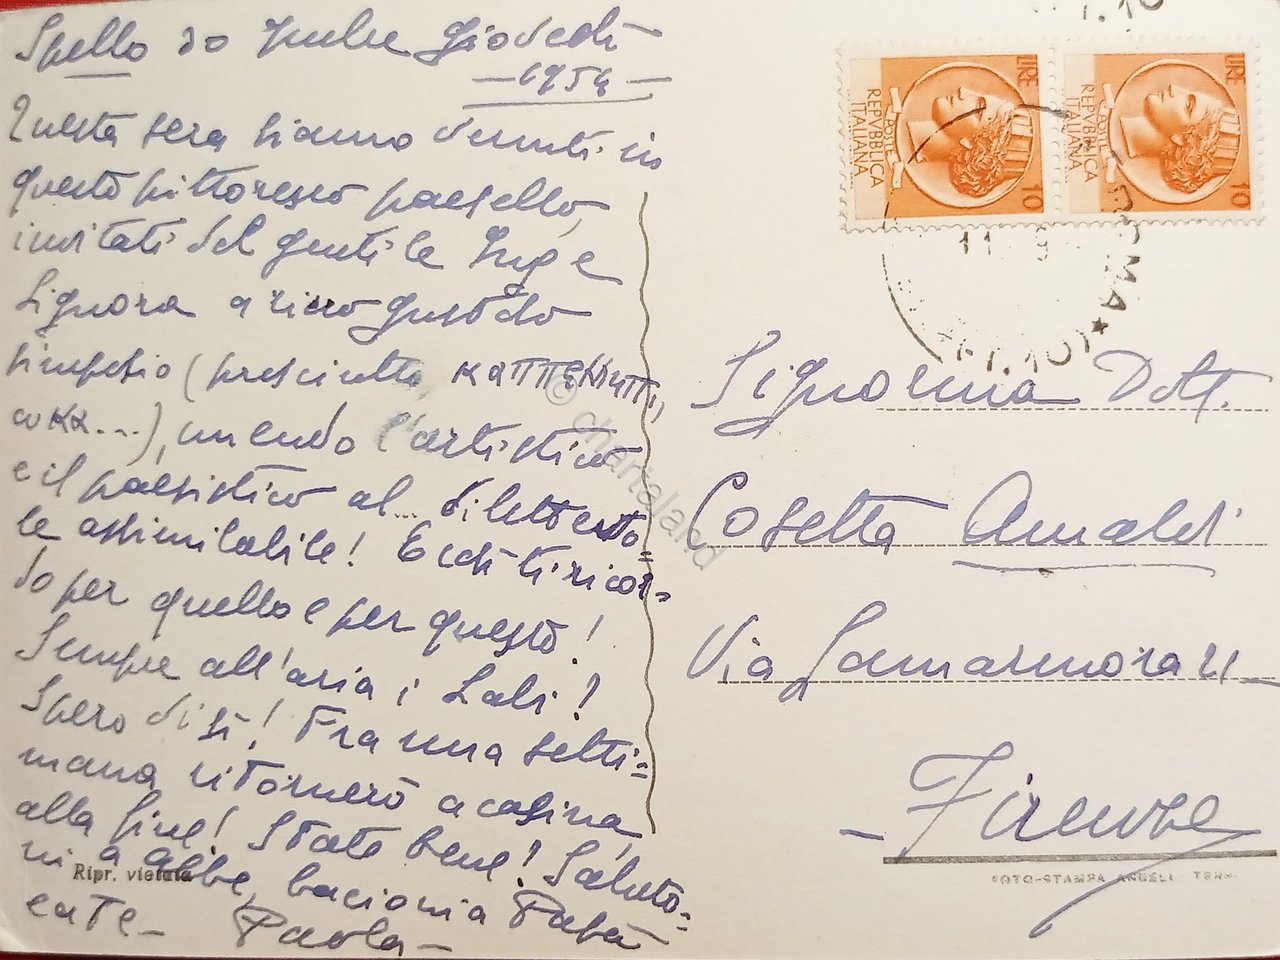 Spello 30 Giovedì
1954
Questa sera siamo venuti in
questo pittoresco paesello,
invitati dal gentile Ing e
Signora a ricco gustoso
simposio (prosciutto, καππεллитті,
...), unendo l'artistico
e il paesistico al... dilettevo=
le assimilabile! E così ti ricor=
do per quello e per questo!
Sempre all'aria i Lali?
Spero di sì! Fra una setti=
mana ritornerò a casina,
alla fine! State bene! Saluto=
ni a bacioni a Babà
e a Te - Paola -
Ripr. vietata
LIRE 10
POSTE
REPVBBLICA
ITALIANA
LIRE 10
POSTE
REPVBBLICA
ITALIANA
ROMA
11
© chartaland
Signorina Dott.
Cosetta Amaldi
Via Lamarmora 21
- Firenze
FOTO-STAMPA ANGELI - TERNI